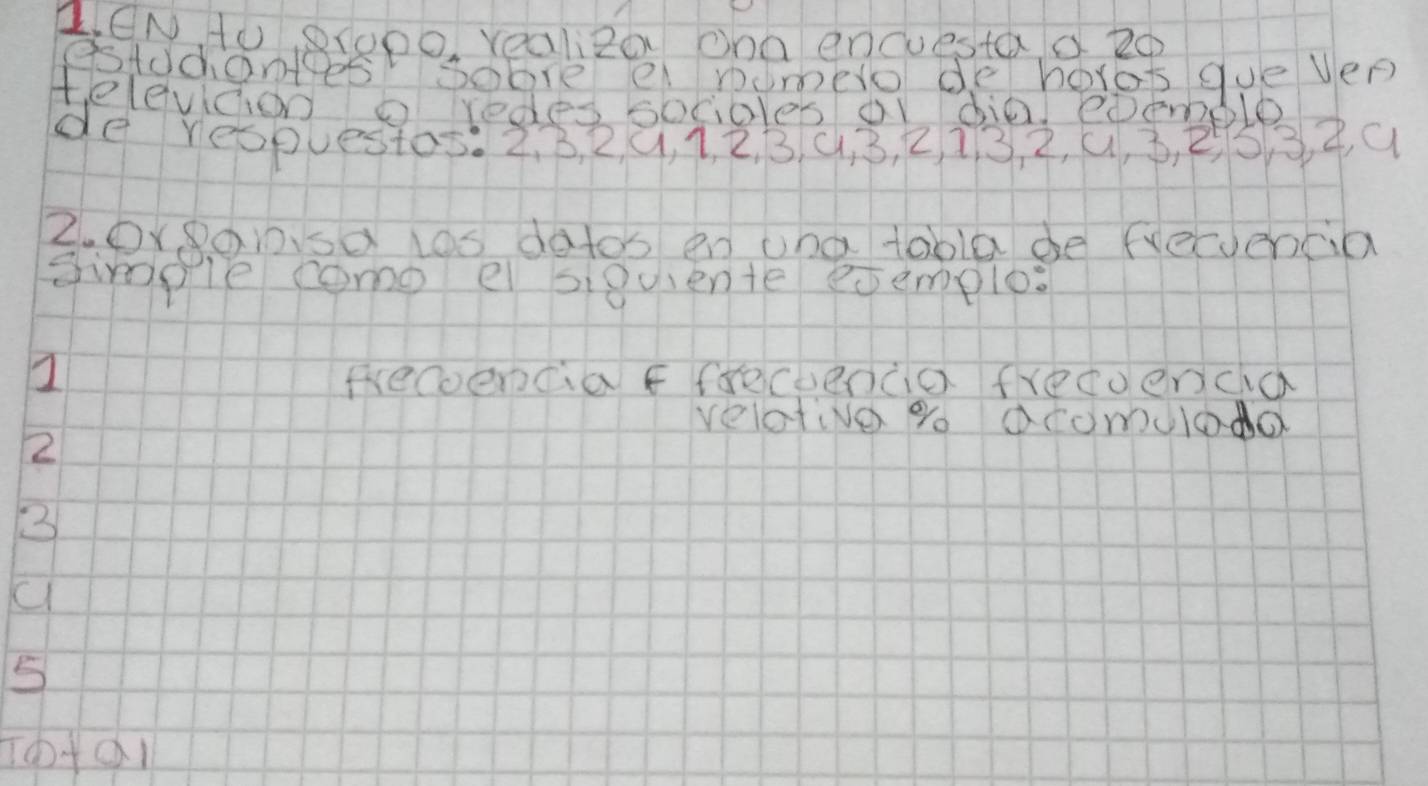 1. EN tu grupo, realiza una encuesta a 20
estudiantees sobre el numero de horas que ven
televicion o redes sociales al dia. ejemplo
de respuestas: 2,3,2,4,1,2,3,4,3,2,1,3,2,4,3,2,5,3,2,4
2. organisa los datos en una tabla de frecuencia
simple como el siguiente ejemplo:
1 frecuencia F frecuencia frecuencia
relativa % acumulada
2
3
4
5
Total